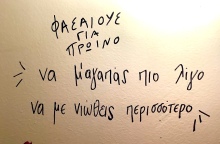 ΦΑΣΑΙΟΥΣ
ΓΙΑ
ΠΡΩΙΝΟ
να μ'αγαπάς πιο λίγο
να με νιώθεις περισσότερο